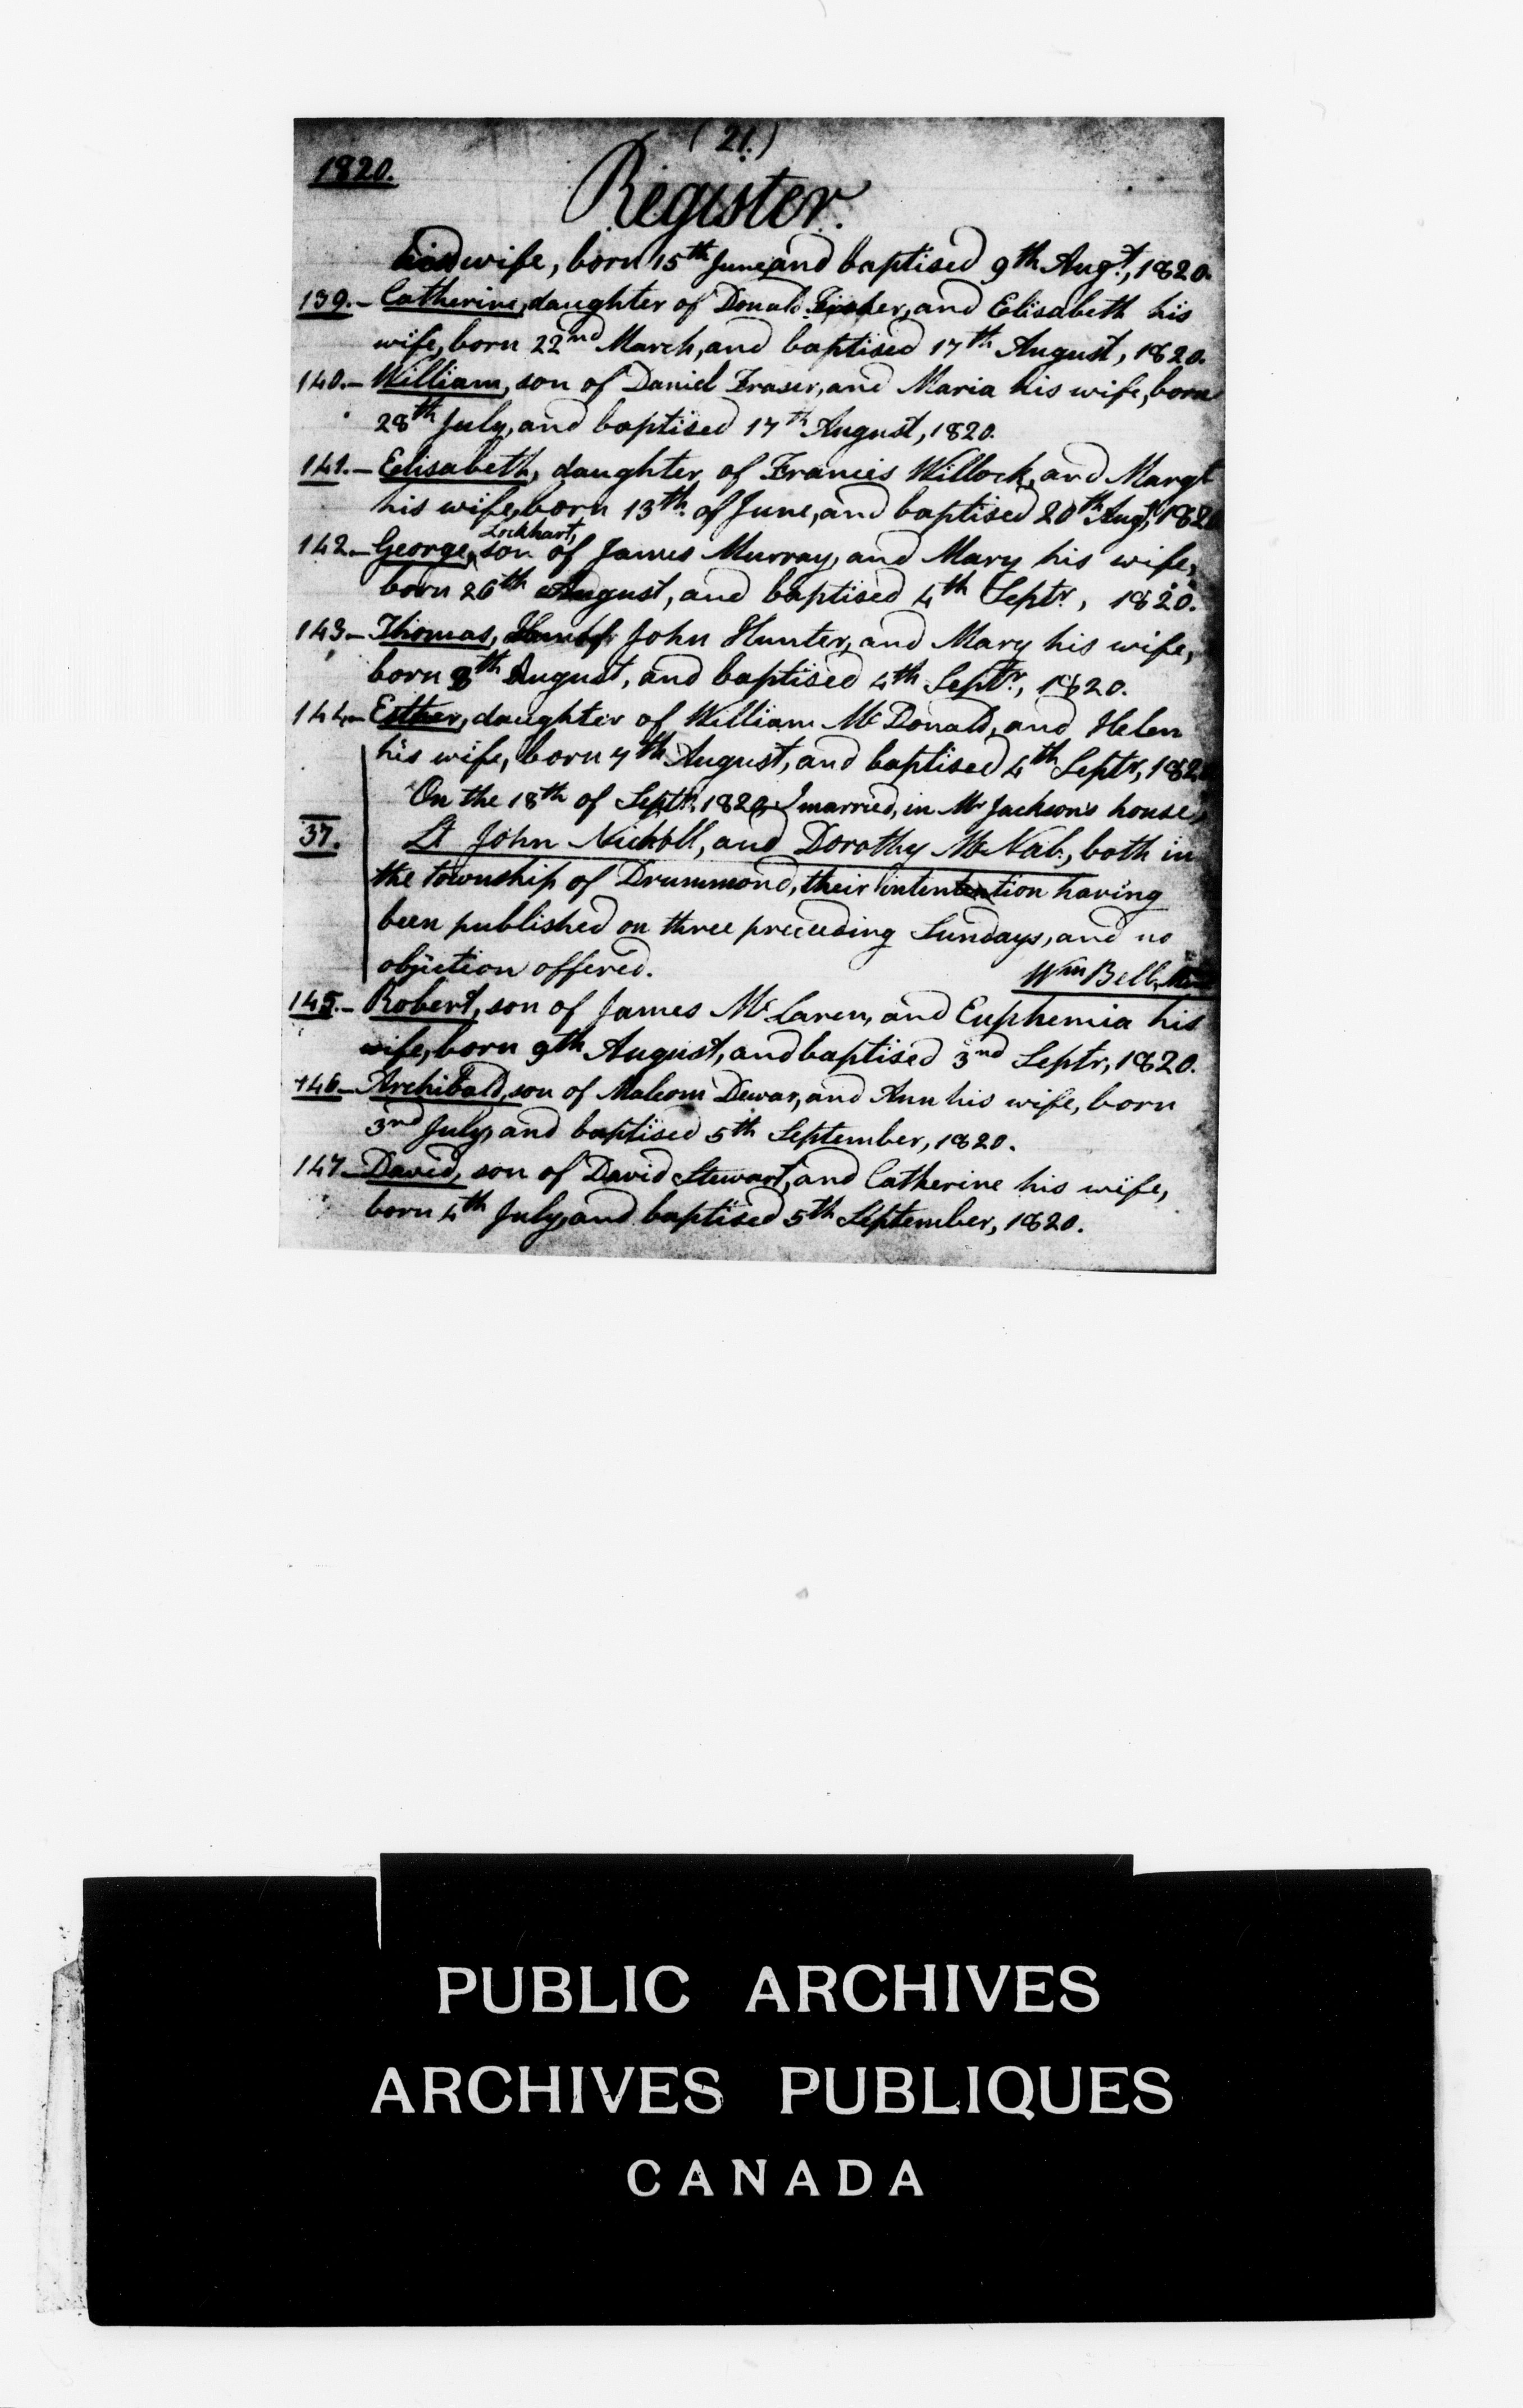 (21.)
1820.
Register.
his wife, born 15th June, and baptised 9th Augt., 1820.
139.- Catherine, daughter of Donald Fisher, and Elisabeth his
wife, born 22nd March, and baptised 17th August, 1820.
140.- William, son of Daniel Fraser, and Maria his wife, born
28th July, and baptised 17th August, 1820.
141.- Elisabeth, daughter of Francis Willock, and Margt
his wife, born 13th of June, and baptised 20th Augt, 1820
Lockhart,
142.- George, son of James Murray, and Mary his wife,
born 26th August, and baptised 4th Septr, 1820.
143.- Thomas, John Hunter, and Mary his wife,
born 8th August, and baptised 4th Septr., 1820.
144.- Esther, daughter of William McDonald, and Helen
his wife, born 7th August, and baptised 4th Septr, 182
On the 18th of Septr. 1820, I married, in Mr Jackson's house,
37. Lt John Nicholl, and Dorothy McNab, both in
the township of Drummond, their intention having
been published on three preceeding Sundays, and no
objection offered. Wm Bell, Min
145.- Robert, son of James McLaren, and Euphemia his
wife, born 9th August, and baptised 3nd Septr, 1820.
146- Archibald, son of Malcom Dewar, and Ann his wife, born
3nd July, and baptised 5th September, 1820.
147- David, son of David Stewart, and Catherine his wife,
born 4th July, and baptised 5th September, 1820.
PUBLIC ARCHIVES
ARCHIVES PUBLIQUES
CANADA